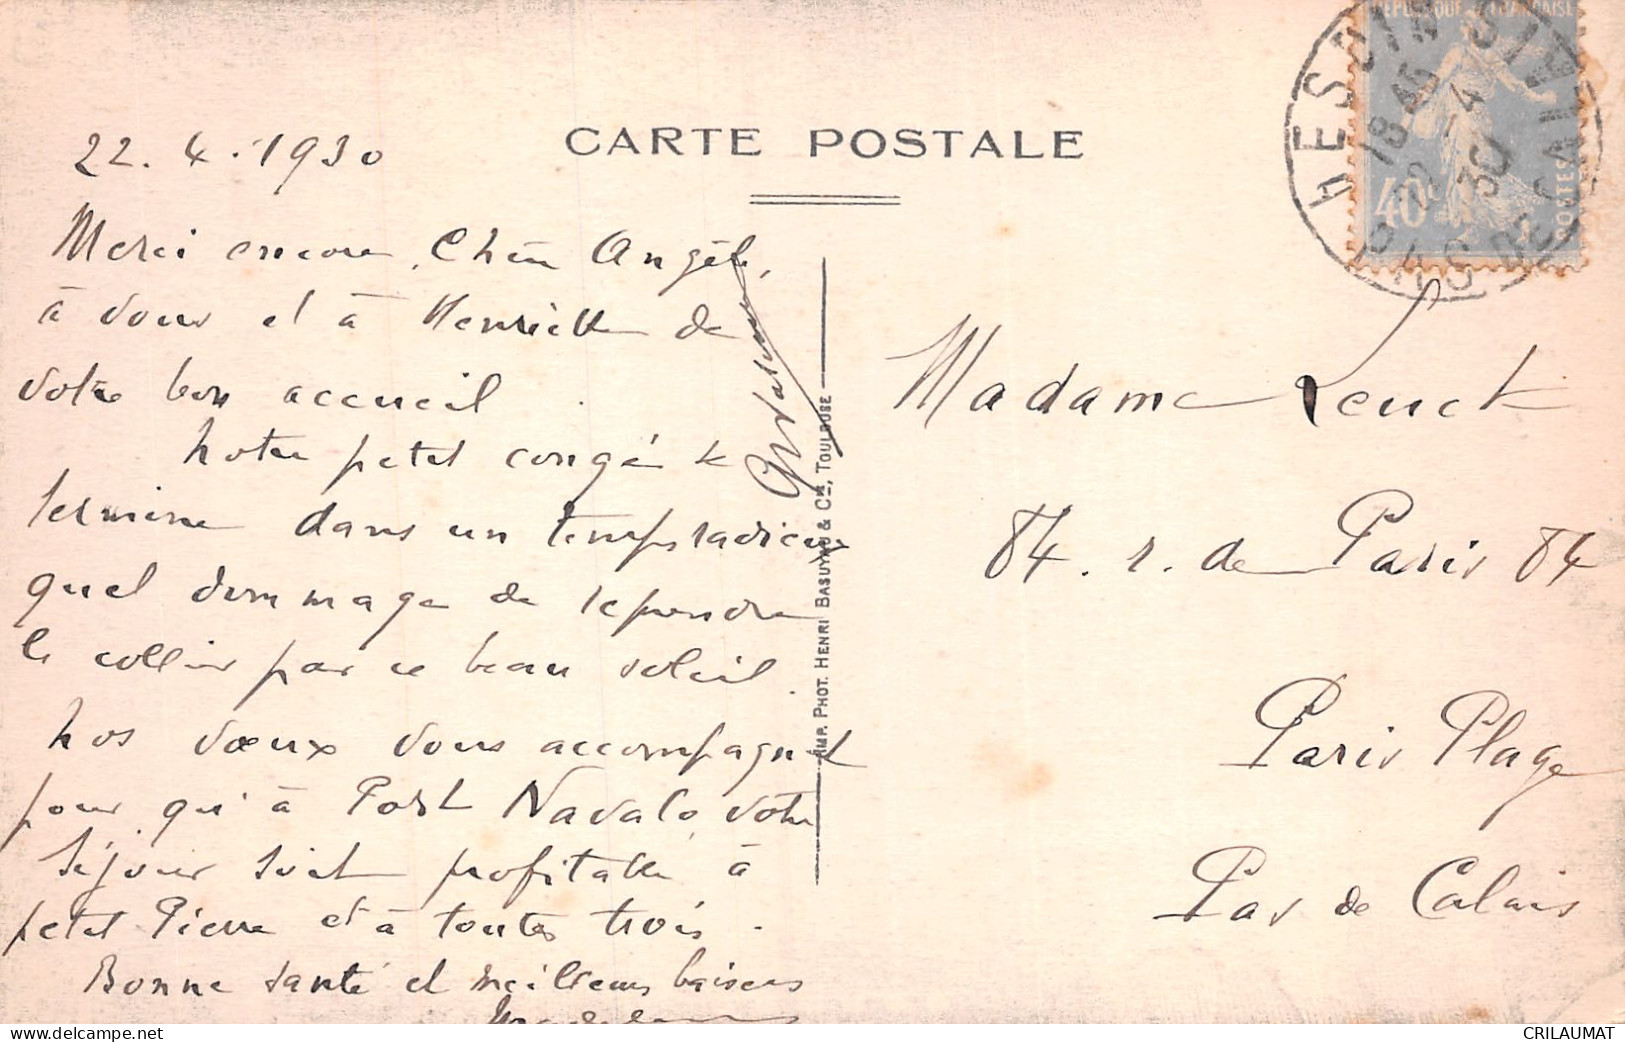 CARTE POSTALE
22.4.1930
Merci encore, Chère Angèle,
à vous et à Henriette de
votre bon accueil.
Notre petit congé se
termine dans un temps radieux
quel dommage de reprendre
le collier par ce beau soleil.
Nos vœux vous accompagnent
pour qu'à Port Navalo votre
séjour soit profitable à
petit Pierre et à toutes trois.
Bonne santé et meilleurs baisers
IMP. PHOT. HENRI BASUYAU & Cie, TOULOUSE
RÉPUBLIQUE FRANÇAISE
40
POSTES
HESDIN
PAS DE CALAIS
18 45
22 -4
30
Madame Leuck
84. r. de Paris 84
Paris Plage
Pas de Calais
delcampe.net
CRILAUMAT